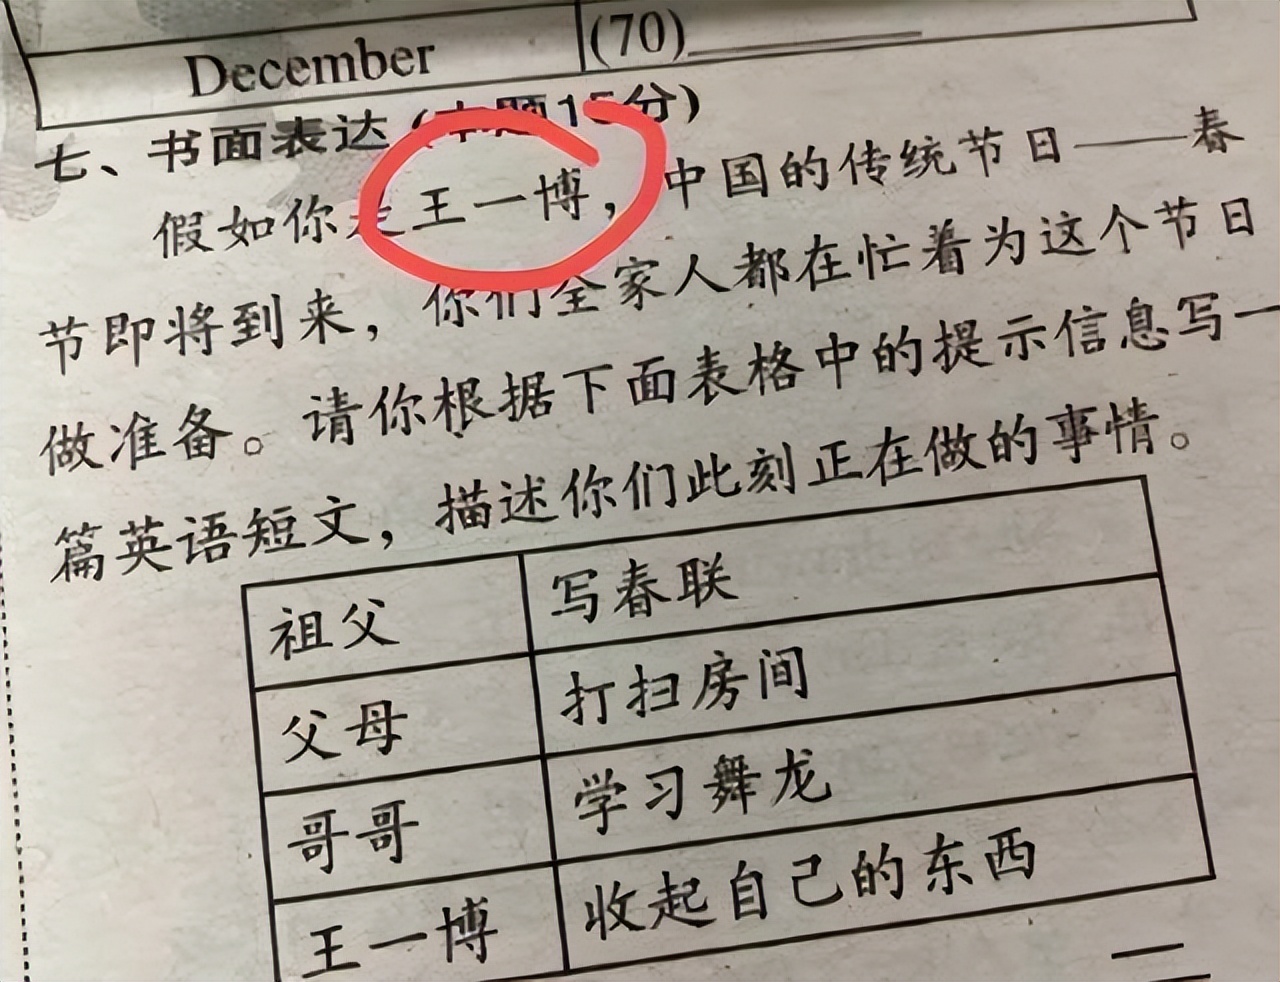 December
(70)
七、书面表达(本题15分)
假如你是王一博，中国的传统节日——春
节即将到来，你们全家人都在忙着为这个节日
做准备。请你根据下面表格中的提示信息写一
篇英语短文，描述你们此刻正在做的事情。
祖父 写春联
父母 打扫房间
哥哥 学习舞龙
王一博 收起自己的东西